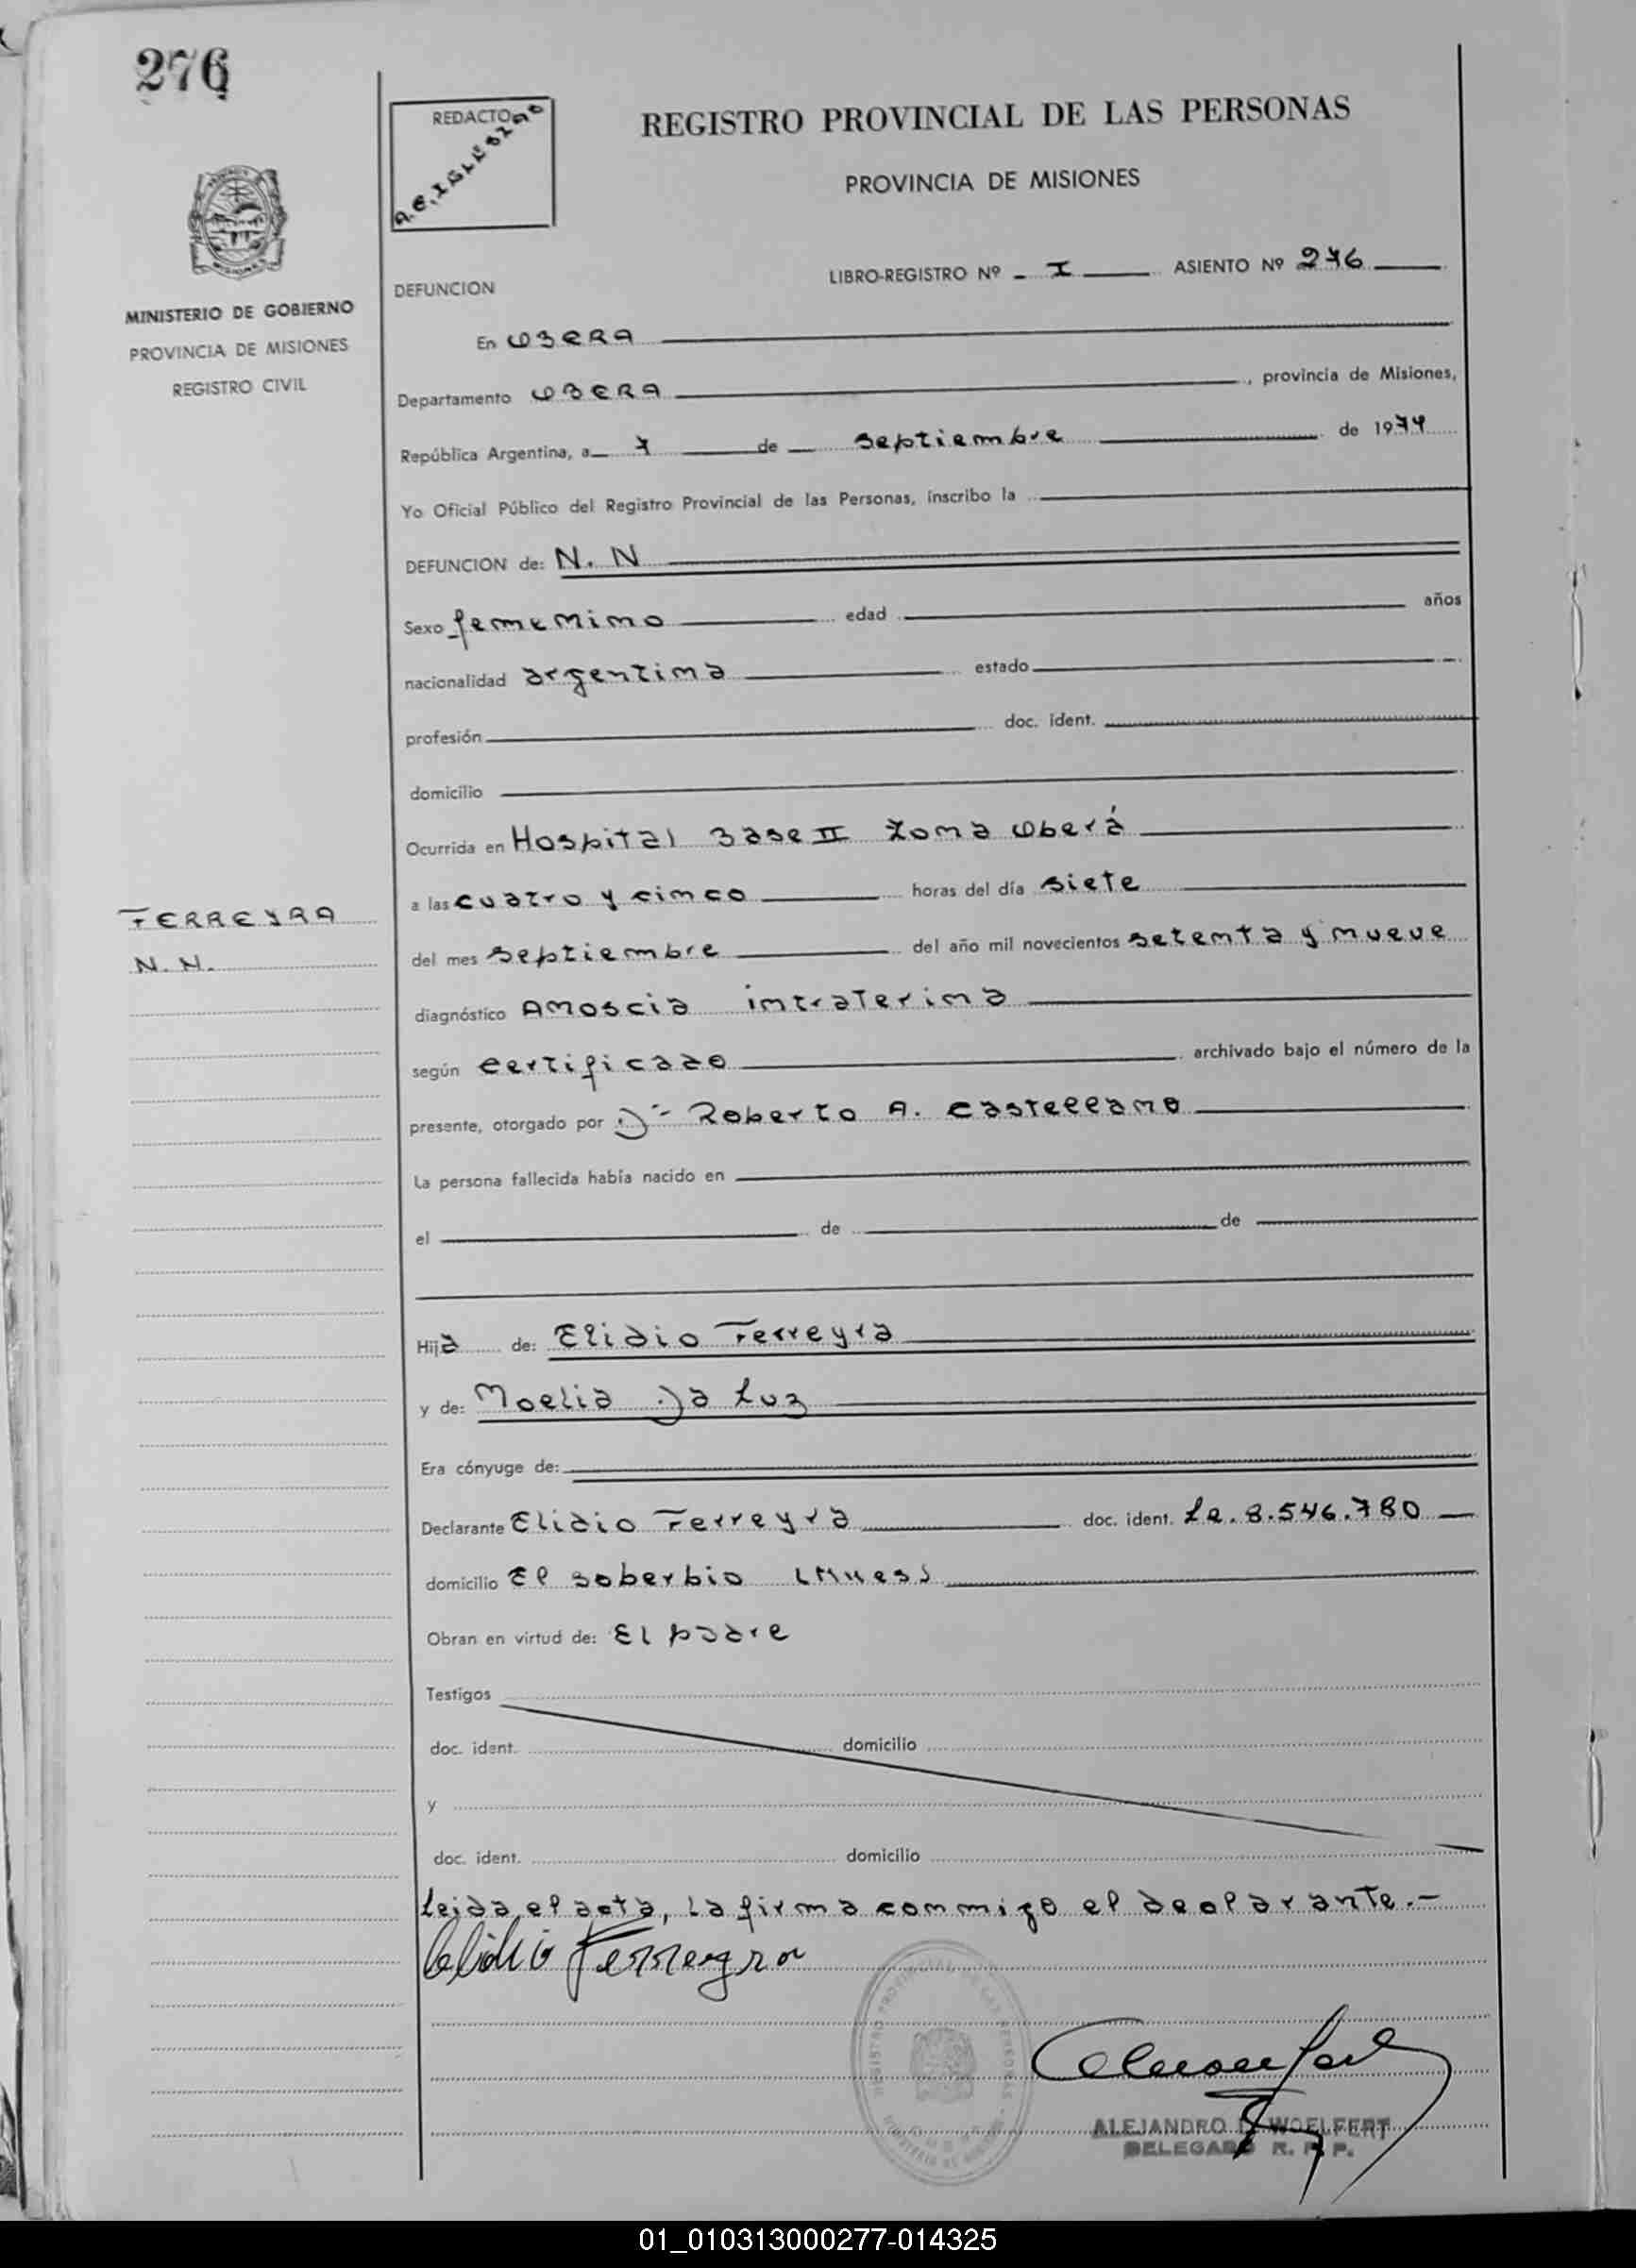 276
REDACTO
A.E. IGLESIAS
REGISTRO PROVINCIAL DE LAS PERSONAS
PROVINCIA DE MISIONES
LIBRO-REGISTRO Nº I ASIENTO Nº 276
DEFUNCION
MINISTERIO DE GOBIERNO
PROVINCIA DE MISIONES
REGISTRO CIVIL
En OBERA
Departamento OBERA, provincia de Misiones,
República Argentina, a 7 de septiembre de 1979
Yo Oficial Público del Registro Provincial de las Personas, inscribo la
DEFUNCION de: N. N
Sexo femenino edad años
nacionalidad argentina estado
profesión doc. ident.
domicilio
Ocurrida en Hospital Base II zona Oberá
a las cuatro y cinco horas del día siete
FERREYRA
N.N.
del mes septiembre del año mil novecientos setenta y nueve
diagnóstico Anoscia intraterina
según certificado archivado bajo el número de la
presente, otorgado por Dr Roberto A. Castellano
La persona fallecida había nacido en
el de de
Hija de: Elidio Ferreyra
y de: Noelia Da Luz
Era cónyuge de:
Declarante Elidio Ferreyra doc. ident. L.E. 8.546.780
domicilio El soberbio (Mnes)
Obran en virtud de: El padre
Testigos
doc. ident. domicilio
y
doc. ident. domicilio
Leida el acta, la firma conmigo el declarante.-
Elidio Ferreyra
ALEJANDRO WOELFERT
DELEGADO R. P. P.
01_010313000277-014325